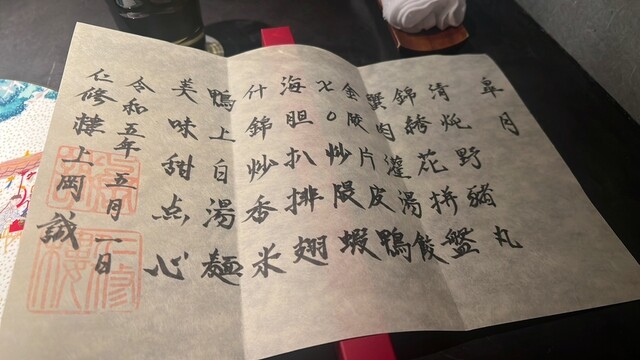 皐月
清炖野豬丸
錦繡花拼盤
蟹肉灌湯餃
金陵片皮鴨
XO炒蝦
海胆扒排翅
什錦炒香米
鴨上白湯麺
美味甜点心
令和五年五月一日
仁修樓上岡誠